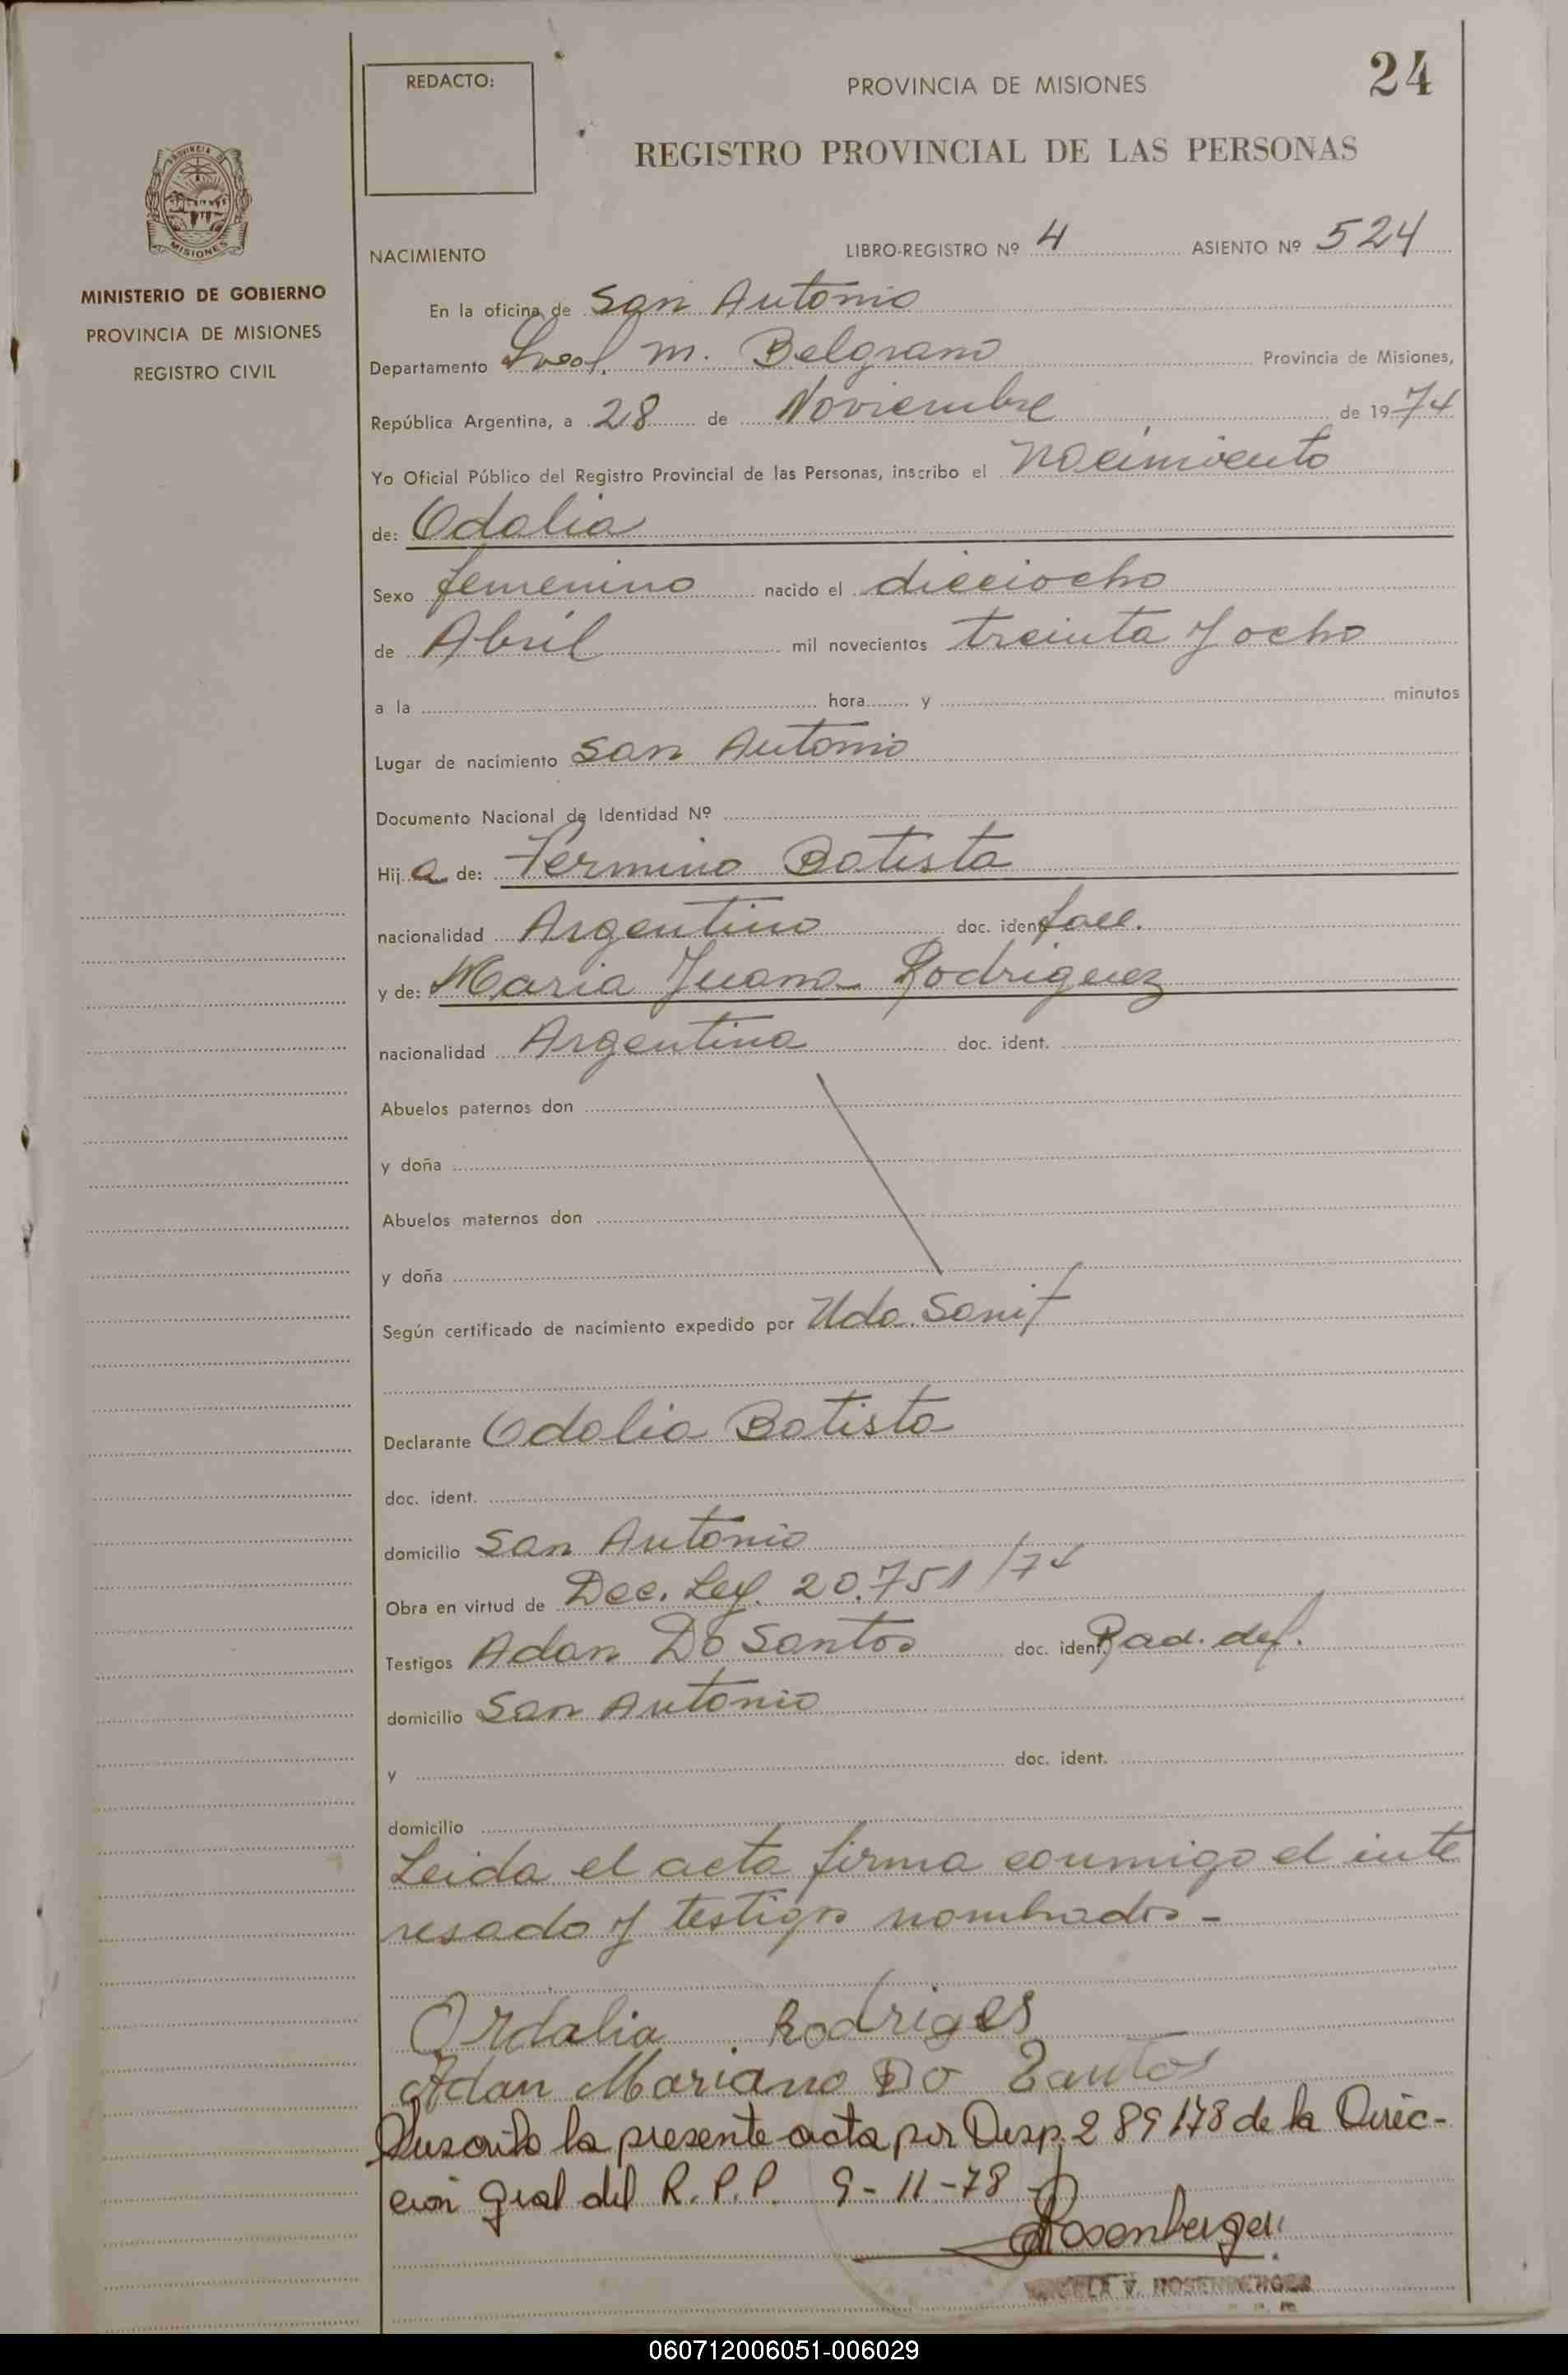 24
REDACTO:
PROVINCIA DE MISIONES
REGISTRO PROVINCIAL DE LAS PERSONAS
PROVINCIA DE
MISIONES
MINISTERIO DE GOBIERNO
PROVINCIA DE MISIONES
REGISTRO CIVIL
NACIMIENTO LIBRO-REGISTRO Nº 4 ASIENTO Nº 524
En la oficina de San Antonio
Departamento Gral. M. Belgrano Provincia de Misiones,
República Argentina, a 28 de Noviembre de 1974
Yo Oficial Público del Registro Provincial de las Personas, inscribo el Nacimiento
de: Odalia
Sexo femenino nacido el dieciocho
de Abril mil novecientos treinta y ocho
a la hora y minutos
Lugar de nacimiento San Antonio
Documento Nacional de Identidad Nº
Hij a de: Fermino Batista
nacionalidad Argentino doc. ident. fall.
y de: Maria Juana Rodriguez
nacionalidad Argentina doc. ident.
Abuelos paternos don
y doña
Abuelos maternos don
y doña
Según certificado de nacimiento expedido por Uda. Sanit
Declarante Odalia Batista
doc. ident.
domicilio San Antonio
Obra en virtud de Dec. Ley. 20.751/74
Testigos Adan Do Santos doc. ident. Rad. def.
domicilio San Antonio
y doc. ident.
domicilio
Leida el acta firma conmigo el inte
resado y testigos nombrados -
Ordalia Rodriges
Adan Mariano Do Santos
la presente acta por Disp. 289178 de la Direc-
cion gral del R. P. P. 9-11-78
Rosenberger
V. ROSENBERGER
060712006051-006029